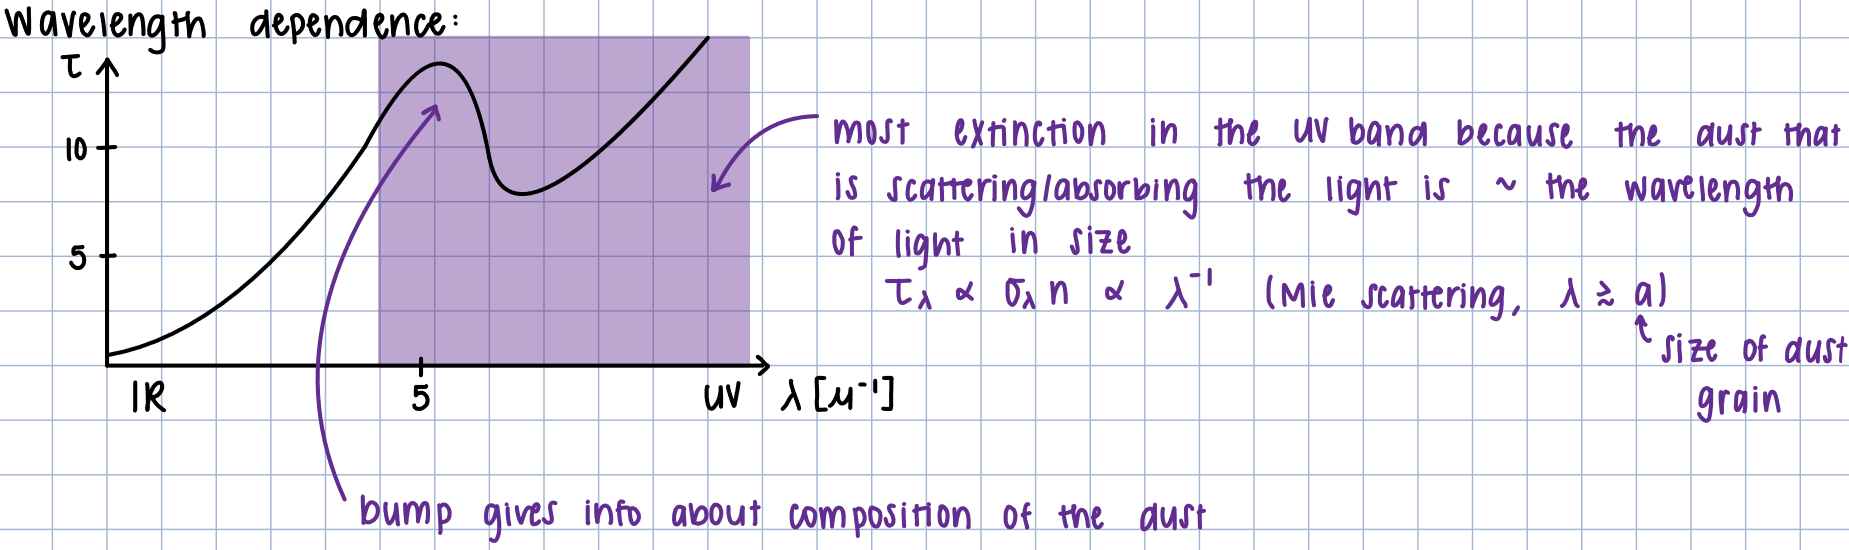 Wavelength dependence:
τ
10
5
IR
5
UV
λ [μ⁻¹]
most extinction in the UV band because the dust that
is scattering/absorbing the light is ~ the wavelength
of light in size
τ_λ ∝ σ_λ n ∝ λ⁻¹ (Mie scattering, λ ≳ a)
size of dust
grain
bump gives info about composition of the dust